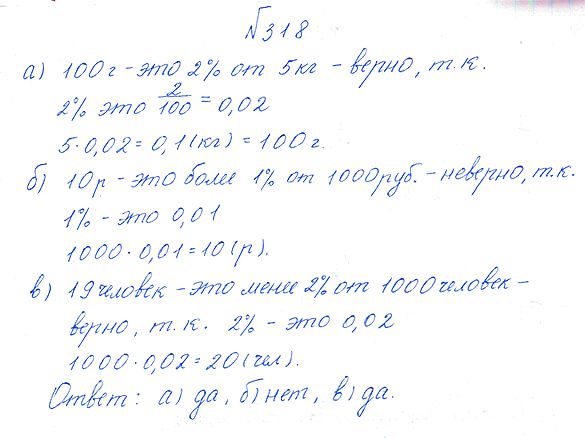 №318
а) 100г - это 2% от 5кг - верно, т.к.
2% это 2/100 = 0,02
5·0,02 = 0,1(кг) = 100г.
б) 10р - это более 1% от 1000руб. - неверно, т.к.
1% - это 0,01
1000·0,01 = 10(р).
в) 19человек - это менее 2% от 1000человек -
верно, т.к. 2% - это 0,02
1000·0,02 = 20(чел).
Ответ: а) да, б) нет, в) да.